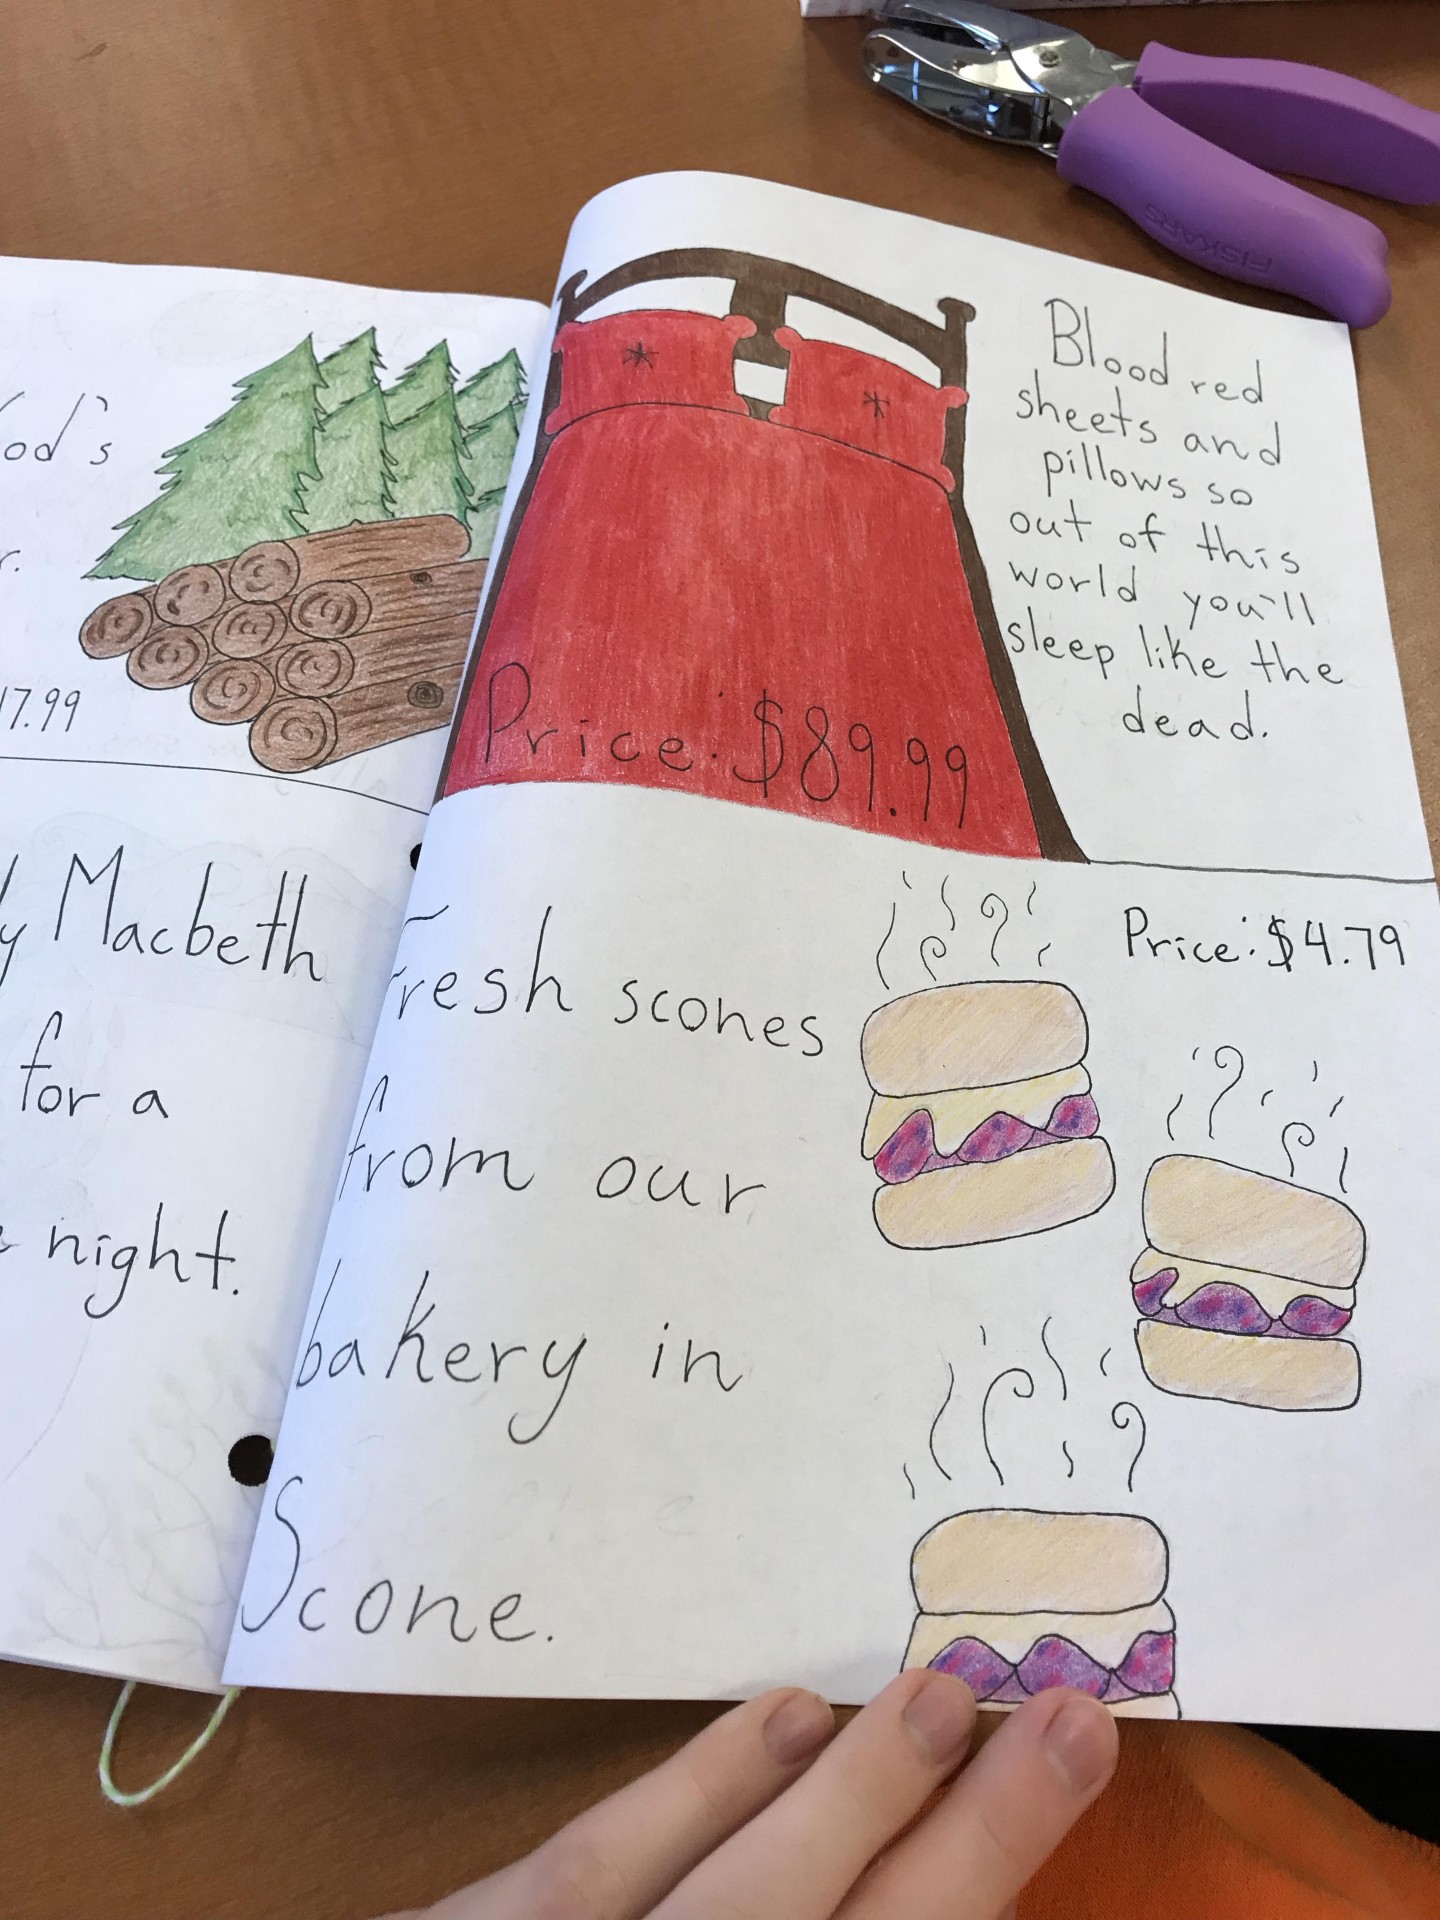 od's
r.
17.99
Macbeth
for a
night.
Blood red
sheets and
pillows so
out of this
world you'll
sleep like the
dead.
Price: $89.99
Price: $4.79
Fresh scones
from our
bakery in
Scone.
FISKARS